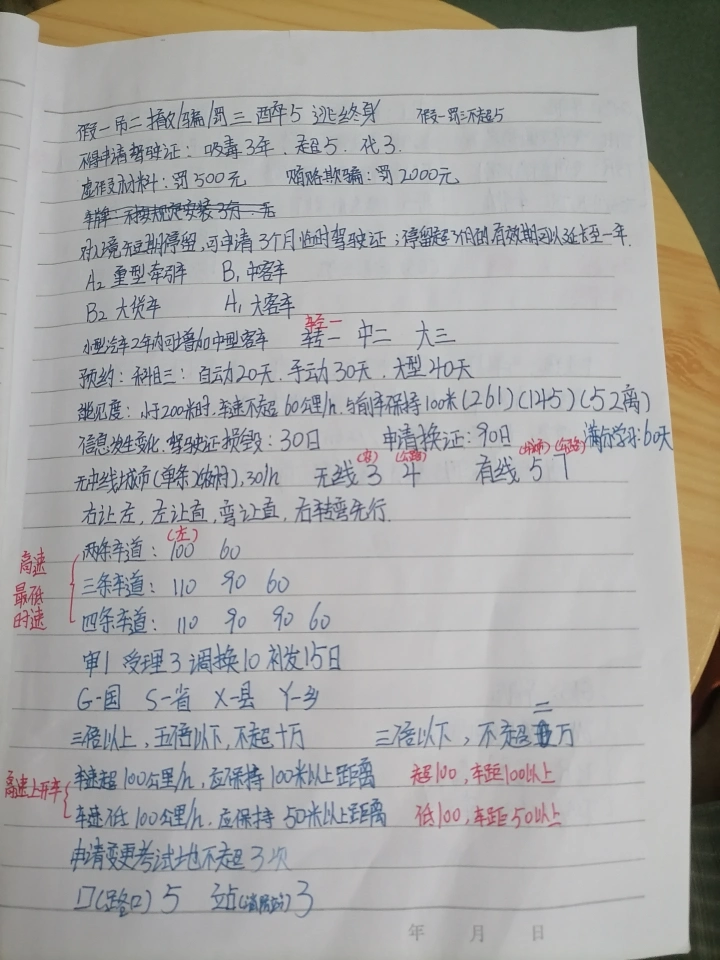 假一吊二撤/骗/罚三醉5逃终身 假一罚三不超5
不得申请驾驶证：吸毒3年．超5．代3．
虚作材料：罚500元 贿赂欺骗：罚2000元
车牌：未按规定安装3分．无
对入境短期停留,可申请3个月临时驾驶证；停留超3个月的有效期可以延长至一年.
A₂ 重型牵引车 B₁ 中客车
B₂ 大货车 A₁ 大客车
小型汽车2年内可增加中型客车 轻一 中二 大三
预约：科目三：自动20天．手动30天．大型40天
能见度：小于200米时,车速不超60公里/h,与前车保持100米(261)(145)(52离)
信息发生变化．驾驶证损毁：30日 申请换证：90日 满分学习：60天
无中线城市(单条2倍时),30/h 无线3 4(公路) 有线5(城市) 7(公路)
右让左,左让直,弯让直,右转弯先行.
高速最低时速
两条车道：100(左) 60
三条车道：110 90 60
四条车道：110 90 90 60
审1 受理3 调换10 补发15日
G-国 S-省 X-县 Y-乡
三倍以上,五倍以下,不超十万 三倍以下,不超二万
高速上开车
车速超100公里/h,应保持100米以上距离 超100,车距100以上
车速低100公里/h．应保持50米以上距离 低100,车距50以上
申请变更考试地不超3次
口(路口)5 站(消防站)3
年 月 日